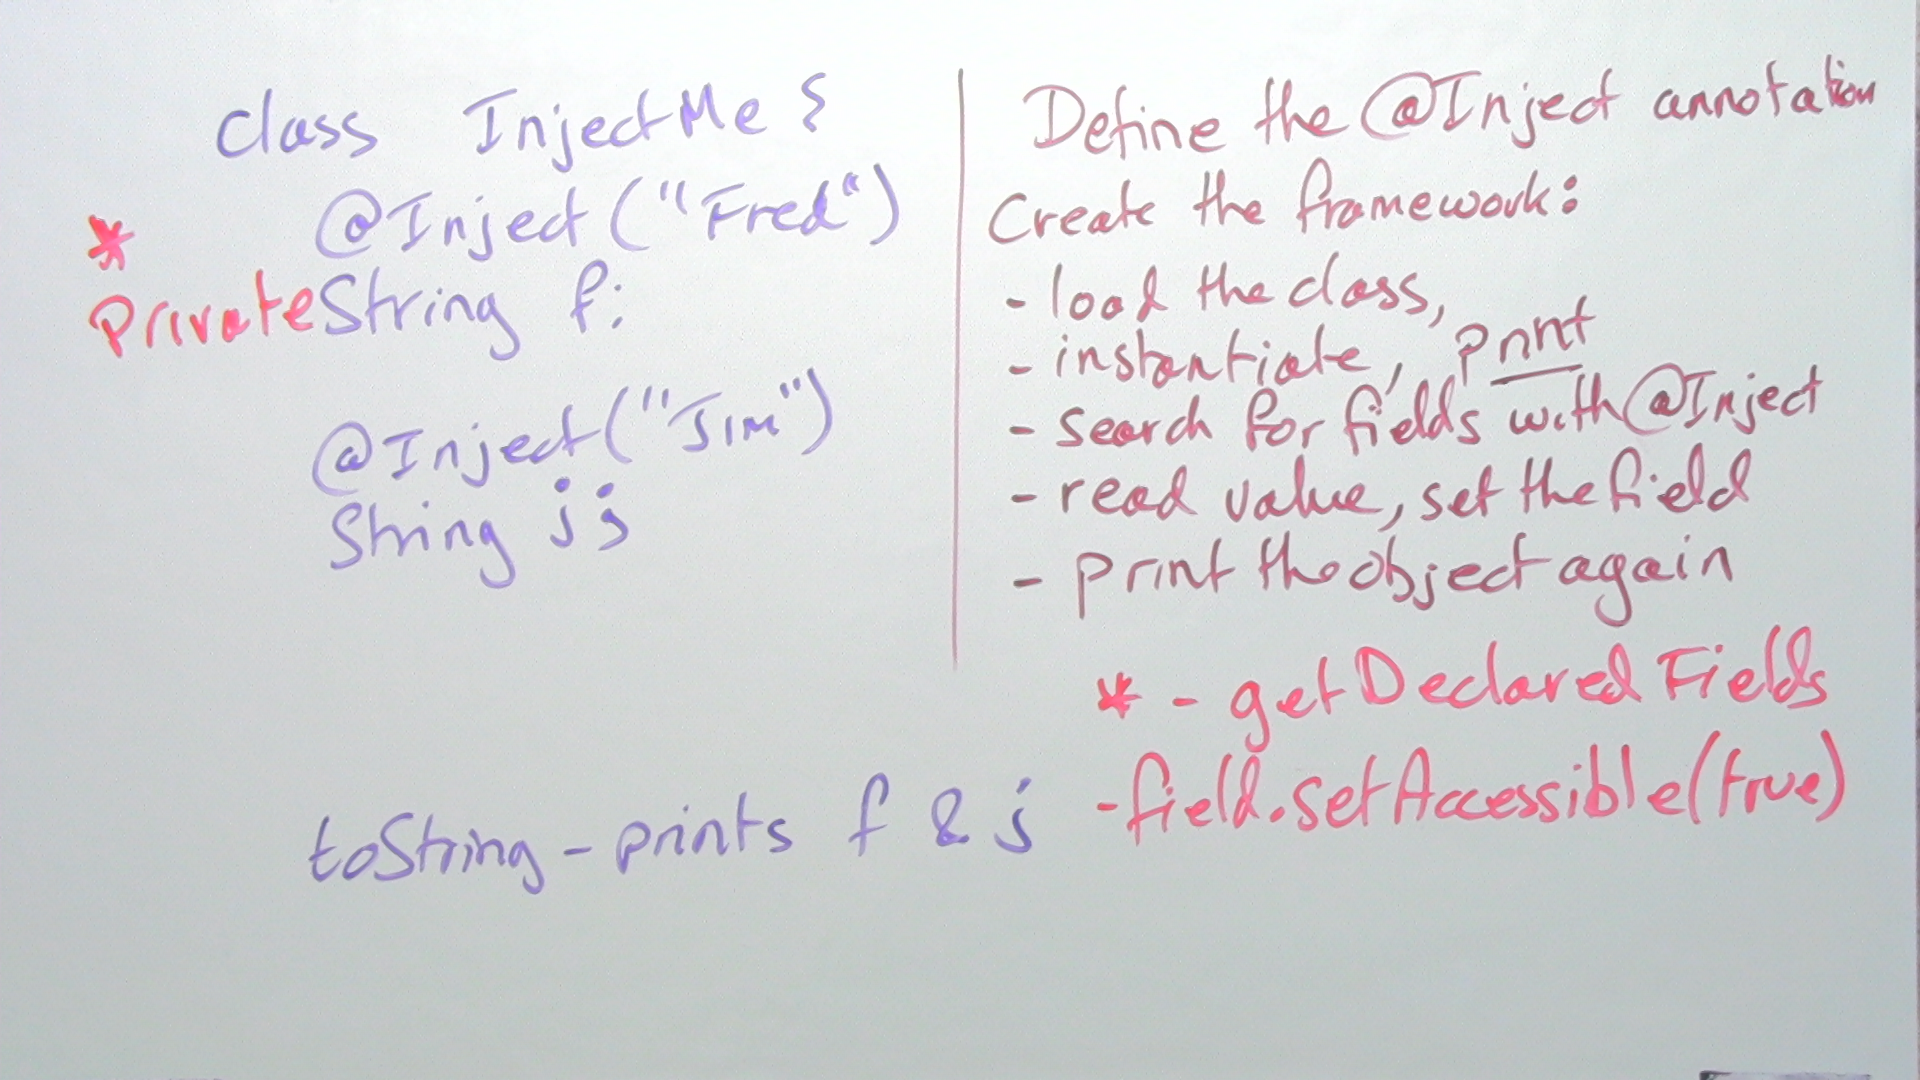 class InjectMe {
@Inject ("Fred")
* Private String f;
@Inject ("Jim")
String j;
toString - prints f & j
Define the @Inject annotation
Create the framework:
- load the class,
- instantiate, print
- search for fields with @Inject
- read value, set the field
- print the object again
* - getDeclared Fields
- field.setAccessible(true)